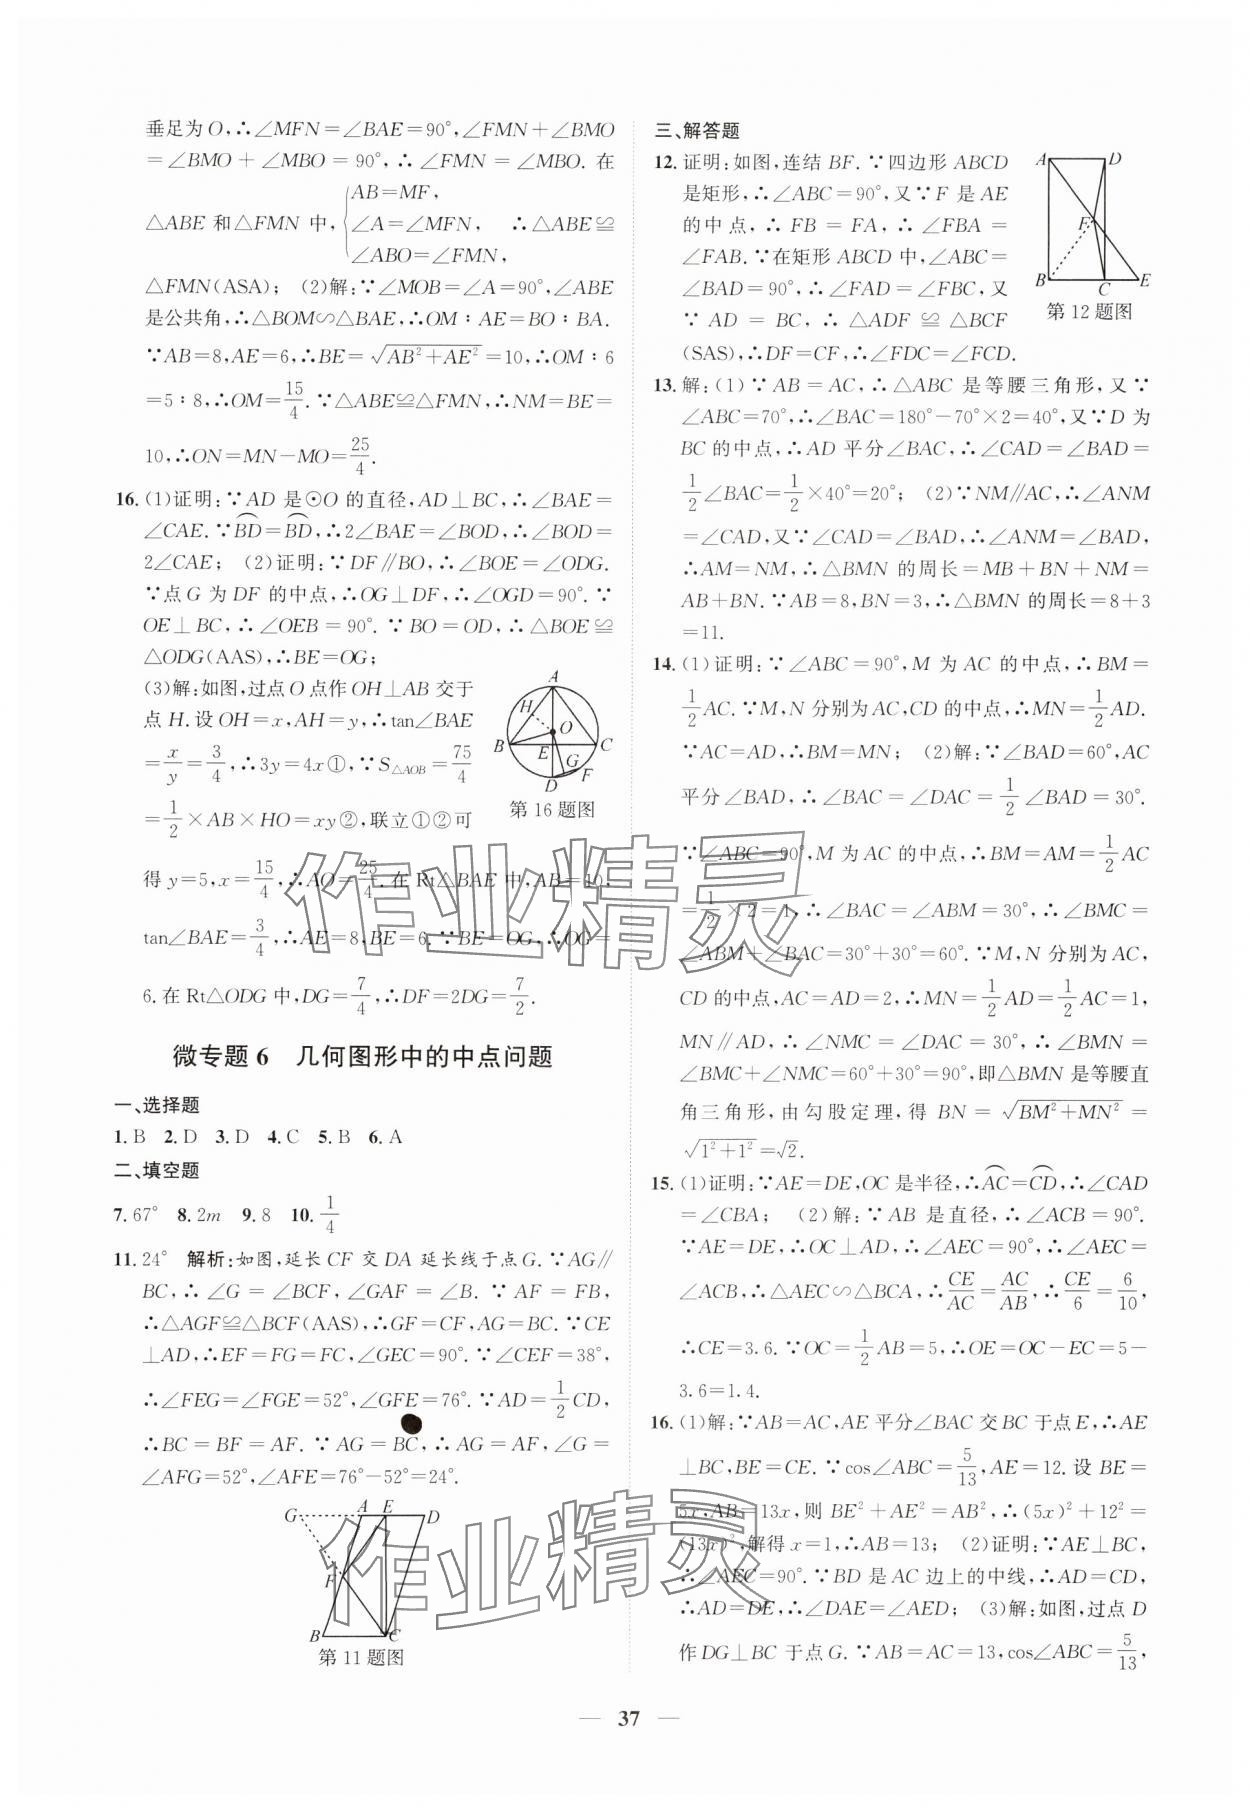 垂足为O,∴∠MFN=∠BAE=90°,∠FMN+∠BMO
=∠BMO+∠MBO=90°,∴∠FMN=∠MBO.在
△ABE和△FMN中,{AB=MF,
∠A=∠MFN,
∠ABO=∠FMN,
∴△ABE≌
△FMN(ASA);(2)解:∵∠MOB=∠A=90°,∠ABE
是公共角,∴△BOM∽△BAE,∴OM∶AE=BO∶BA.
∵AB=8,AE=6,∴BE=√(AB²+AE²)=10,∴OM∶6
=5∶8,∴OM=15/4.∵△ABE≌△FMN,∴NM=BE=
10,∴ON=MN-MO=25/4.
16.(1)证明:∵AD是⊙O的直径,AD⊥BC,∴∠BAE=
∠CAE.∵BD⌒=BD⌒,∴2∠BAE=∠BOD,∴∠BOD=
2∠CAE;(2)证明:∵DF∥BO,∴∠BOE=∠ODG.
∵点G为DF的中点,∴OG⊥DF,∴∠OGD=90°.∵
OE⊥BC,∴∠OEB=90°.∵BO=OD,∴△BOE≌
△ODG(AAS),∴BE=OG;
(3)解:如图,过点O点作OH⊥AB交于
点H.设OH=x,AH=y,∴tan∠BAE
=x/y=3/4,∴3y=4x①,∵S△AOB=75/4
=1/2×AB×HO=xy②,联立①②可
得y=5,x=15/4,∴AO=25/4.在Rt△BAE中,AB=10,
tan∠BAE=3/4,∴AE=8,BE=6.∵BE=OG,∴OG=
6.在Rt△ODG中,DG=7/4,∴DF=2DG=7/2.
A
H
O
B
E
C
G
F
D
第16题图
微专题6 几何图形中的中点问题
一、选择题
1.B 2.D 3.D 4.C 5.B 6.A
二、填空题
7.67° 8.2m 9.8 10.1/4
11.24° 解析:如图,延长CF交DA延长线于点G.∵AG∥
BC,∴∠G=∠BCF,∠GAF=∠B.∵AF=FB,
∴△AGF≌△BCF(AAS),∴GF=CF,AG=BC.∵CE
⊥AD,∴EF=FG=FC,∠GEC=90°.∵∠CEF=38°,
∴∠FEG=∠FGE=52°,∠GFE=76°.∵AD=1/2CD,
∴BC=BF=AF.∵AG=BC,∴AG=AF,∠G=
∠AFG=52°,∠AFE=76°-52°=24°.
G
A
E
D
F
B
C
第11题图
三、解答题
12.证明:如图,连结BF.∵四边形ABCD
是矩形,∴∠ABC=90°,又∵F是AE
的中点,∴FB=FA,∴∠FBA=
∠FAB.∵在矩形ABCD中,∠ABC=
∠BAD=90°,∴∠FAD=∠FBC,又
∵AD=BC,∴△ADF≌△BCF
(SAS),∴DF=CF,∴∠FDC=∠FCD.
A
D
F
B
C
E
第12题图
13.解:(1)∵AB=AC,∴△ABC是等腰三角形,又∵
∠ABC=70°,∴∠BAC=180°-70°×2=40°,又∵D为
BC的中点,∴AD平分∠BAC,∴∠CAD=∠BAD=
1/2∠BAC=1/2×40°=20°;(2)∵NM∥AC,∴∠ANM
=∠CAD,又∵∠CAD=∠BAD,∴∠ANM=∠BAD,
∴AM=NM,∴△BMN的周长=MB+BN+NM=
AB+BN.∵AB=8,BN=3,∴△BMN的周长=8+3
=11.
14.(1)证明:∵∠ABC=90°,M为AC的中点,∴BM=
1/2AC.∵M,N分别为AC,CD的中点,∴MN=1/2AD.
∵AC=AD,∴BM=MN;(2)解:∵∠BAD=60°,AC
平分∠BAD,∴∠BAC=∠DAC=1/2∠BAD=30°.
∵∠ABC=90°,M为AC的中点,∴BM=AM=1/2AC
=1/2×2=1,∴∠BAC=∠ABM=30°,∴∠BMC=
∠ABM+∠BAC=30°+30°=60°.∵M,N分别为AC,
CD的中点,AC=AD=2,∴MN=1/2AD=1/2AC=1,
MN∥AD,∴∠NMC=∠DAC=30°,∴∠BMN=
∠BMC+∠NMC=60°+30°=90°,即△BMN是等腰直
角三角形,由勾股定理,得BN=√(BM²+MN²)=
√(1²+1²)=√2.
15.(1)证明:∵AE=DE,OC是半径,∴AC⌒=CD⌒,∴∠CAD
=∠CBA;(2)解:∵AB是直径,∴∠ACB=90°.
∵AE=DE,∴OC⊥AD,∴∠AEC=90°,∴∠AEC=
∠ACB,∴△AEC∽△BCA,∴CE/AC=AC/AB,∴CE/6=6/10,
∴CE=3.6.∵OC=1/2AB=5,∴OE=OC-EC=5-
3.6=1.4.
16.(1)解:∵AB=AC,AE平分∠BAC交BC于点E,∴AE
⊥BC,BE=CE.∵cos∠ABC=5/13,AE=12.设BE=
5x,AB=13x,则BE²+AE²=AB²,∴(5x)²+12²=
(13x)²,解得x=1,∴AB=13;(2)证明:∵AE⊥BC,
∴∠AEC=90°.∵BD是AC边上的中线,∴AD=CD,
∴AD=DE,∴∠DAE=∠AED;(3)解:如图,过点D
作DG⊥BC于点G.∵AB=AC=13,cos∠ABC=5/13,
作业精灵
作业精灵
37